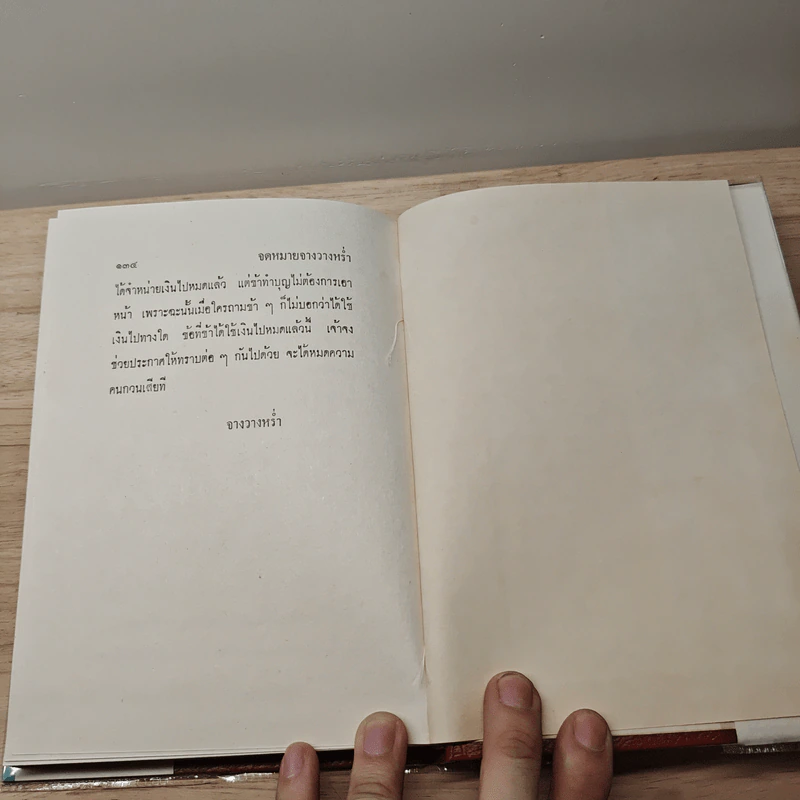 ๑๓๔ จดหมายจางวางหร่ำ
ได้จำหน่ายเงินไปหมดแล้ว แต่ข้าทำบุญไม่ต้องการเอา
หน้า เพราะฉะนั้นเมื่อใครถามข้า ๆ ก็ไม่บอกว่าได้ใช้
เงินไปทางใด ข้อที่ข้าได้ใช้เงินไปหมดแล้วนี้ เจ้าจง
ช่วยประกาศให้ทราบต่อ ๆ กันไปด้วย จะได้หมดความ
คนกวนเสียที
จางวางหร่ำ